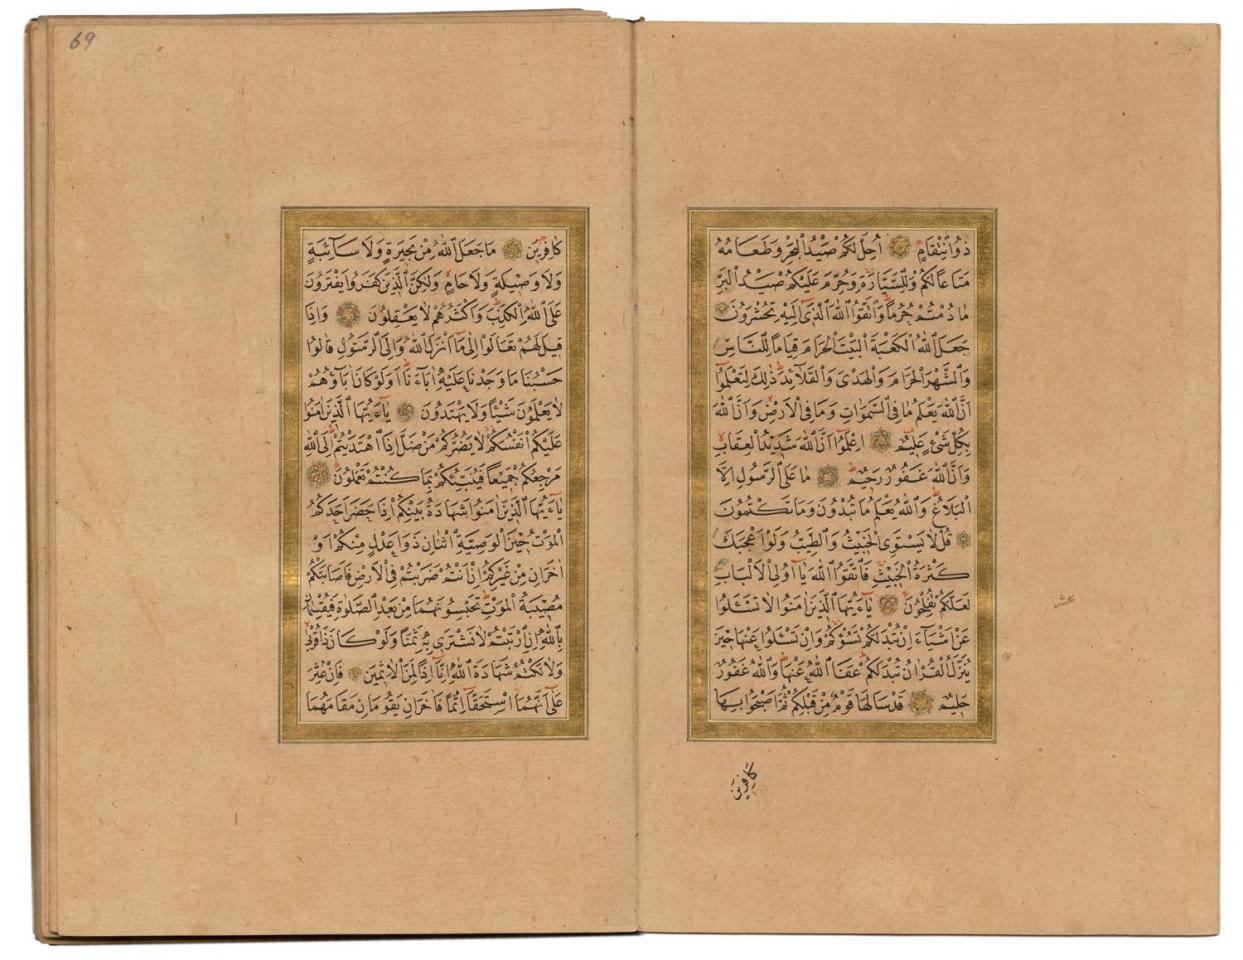 ذُو انْتِقَامٍ اُحِلَّ لَكُمْ صَيْدُ الْبَحْرِ وَطَعَامُهُ
مَتَاعًا لَكُمْ وَلِلسَّيَّارَةِ وَحُرِّمَ عَلَيْكُمْ صَيْدُ الْبَرِّ
مَا دُمْتُمْ حُرُمًا وَاتَّقُوا اللّٰهَ الَّذِى اِلَيْهِ تُحْشَرُونَ
جَعَلَ اللّٰهُ الْكَعْبَةَ الْبَيْتَ الْحَرَامَ قِيَامًا لِلنَّاسِ
وَالشَّهْرَ الْحَرَامَ وَالْهَدْىَ وَالْقَلَآئِدَ ذٰلِكَ لِتَعْلَمُوا
اَنَّ اللّٰهَ يَعْلَمُ مَا فِى السَّمٰوَاتِ وَمَا فِى الْاَرْضِ وَاَنَّ اللّٰهَ
بِكُلِّ شَىْءٍ عَلِيمٌ اِعْلَمُوا اَنَّ اللّٰهَ شَدِيدُ الْعِقَابِ
وَاَنَّ اللّٰهَ غَفُورٌ رَحِيمٌ مَا عَلَى الرَّسُولِ اِلَّا
الْبَلَاغُ وَاللّٰهُ يَعْلَمُ مَا تُبْدُونَ وَمَا تَكْتُمُونَ
قُلْ لَا يَسْتَوِى الْخَبِيثُ وَالطَّيِّبُ وَلَوْ اَعْجَبَكَ
كَثْرَةُ الْخَبِيثِ فَاتَّقُوا اللّٰهَ يَا اُولِى الْاَلْبَابِ
لَعَلَّكُمْ تُفْلِحُونَ يَآءَيُّهَا الَّذِينَ اٰمَنُوا لَا تَسْئَلُوا
عَنْ اَشْيَآءَ اِنْ تُبْدَ لَكُمْ تَسُؤْكُمْ وَاِنْ تَسْئَلُوا عَنْهَا حِينَ
يُنَزَّلُ الْقُرْاٰنُ تُبْدَ لَكُمْ عَفَا اللّٰهُ عَنْهَا وَاللّٰهُ غَفُورٌ
حَلِيمٌ قَدْ سَاَلَهَا قَوْمٌ مِنْ قَبْلِكُمْ ثُمَّ اَصْبَحُوا بِهَا
كَافِرِينَ
كَافِرِينَ مَا جَعَلَ اللّٰهُ مِنْ بَحِيرَةٍ وَلَا سَآئِبَةٍ
وَلَا وَصِيلَةٍ وَلَا حَامٍ وَلٰكِنَّ الَّذِينَ كَفَرُوا يَفْتَرُونَ
عَلَى اللّٰهِ الْكَذِبَ وَاَكْثَرُهُمْ لَا يَعْقِلُونَ وَاِذَا
قِيلَ لَهُمْ تَعَالَوْا اِلٰى مَا اَنْزَلَ اللّٰهُ وَاِلَى الرَّسُولِ قَالُوا
حَسْبُنَا مَا وَجَدْنَا عَلَيْهِ اٰبَآءَنَا اَوَلَوْ كَانَ اٰبَآؤُهُمْ
لَا يَعْلَمُونَ شَيْئًا وَلَا يَهْتَدُونَ يَآءَيُّهَا الَّذِينَ اٰمَنُوا
عَلَيْكُمْ اَنْفُسَكُمْ لَا يَضُرُّكُمْ مَنْ ضَلَّ اِذَا اهْتَدَيْتُمْ اِلَى اللّٰهِ
مَرْجِعُكُمْ جَمِيعًا فَيُنَبِّئُكُمْ بِمَا كُنْتُمْ تَعْمَلُونَ
يَآءَيُّهَا الَّذِينَ اٰمَنُوا شَهَادَةُ بَيْنِكُمْ اِذَا حَضَرَ اَحَدَكُمُ
الْمَوْتُ حِينَ الْوَصِيَّةِ اثْنَانِ ذَوَا عَدْلٍ مِنْكُمْ اَوْ
اٰخَرَانِ مِنْ غَيْرِكُمْ اِنْ اَنْتُمْ ضَرَبْتُمْ فِى الْاَرْضِ فَاَصَابَتْكُمْ
مُصِيبَةُ الْمَوْتِ تَحْبِسُونَهُمَا مِنْ بَعْدِ الصَّلٰوةِ فَيُقْسِمَانِ
بِاللّٰهِ اِنِ ارْتَبْتُمْ لَا نَشْتَرِى بِهِ ثَمَنًا وَلَوْ كَانَ ذَا قُرْبٰى
وَلَا نَكْتُمُ شَهَادَةَ اللّٰهِ اِنَّا اِذًا لَمِنَ الْاٰثِمِينَ فَاِنْ عُثِرَ
عَلٰى اَنَّهُمَا اسْتَحَقَّا اِثْمًا فَاٰخَرَانِ يَقُومَانِ مَقَامَهُمَا
69